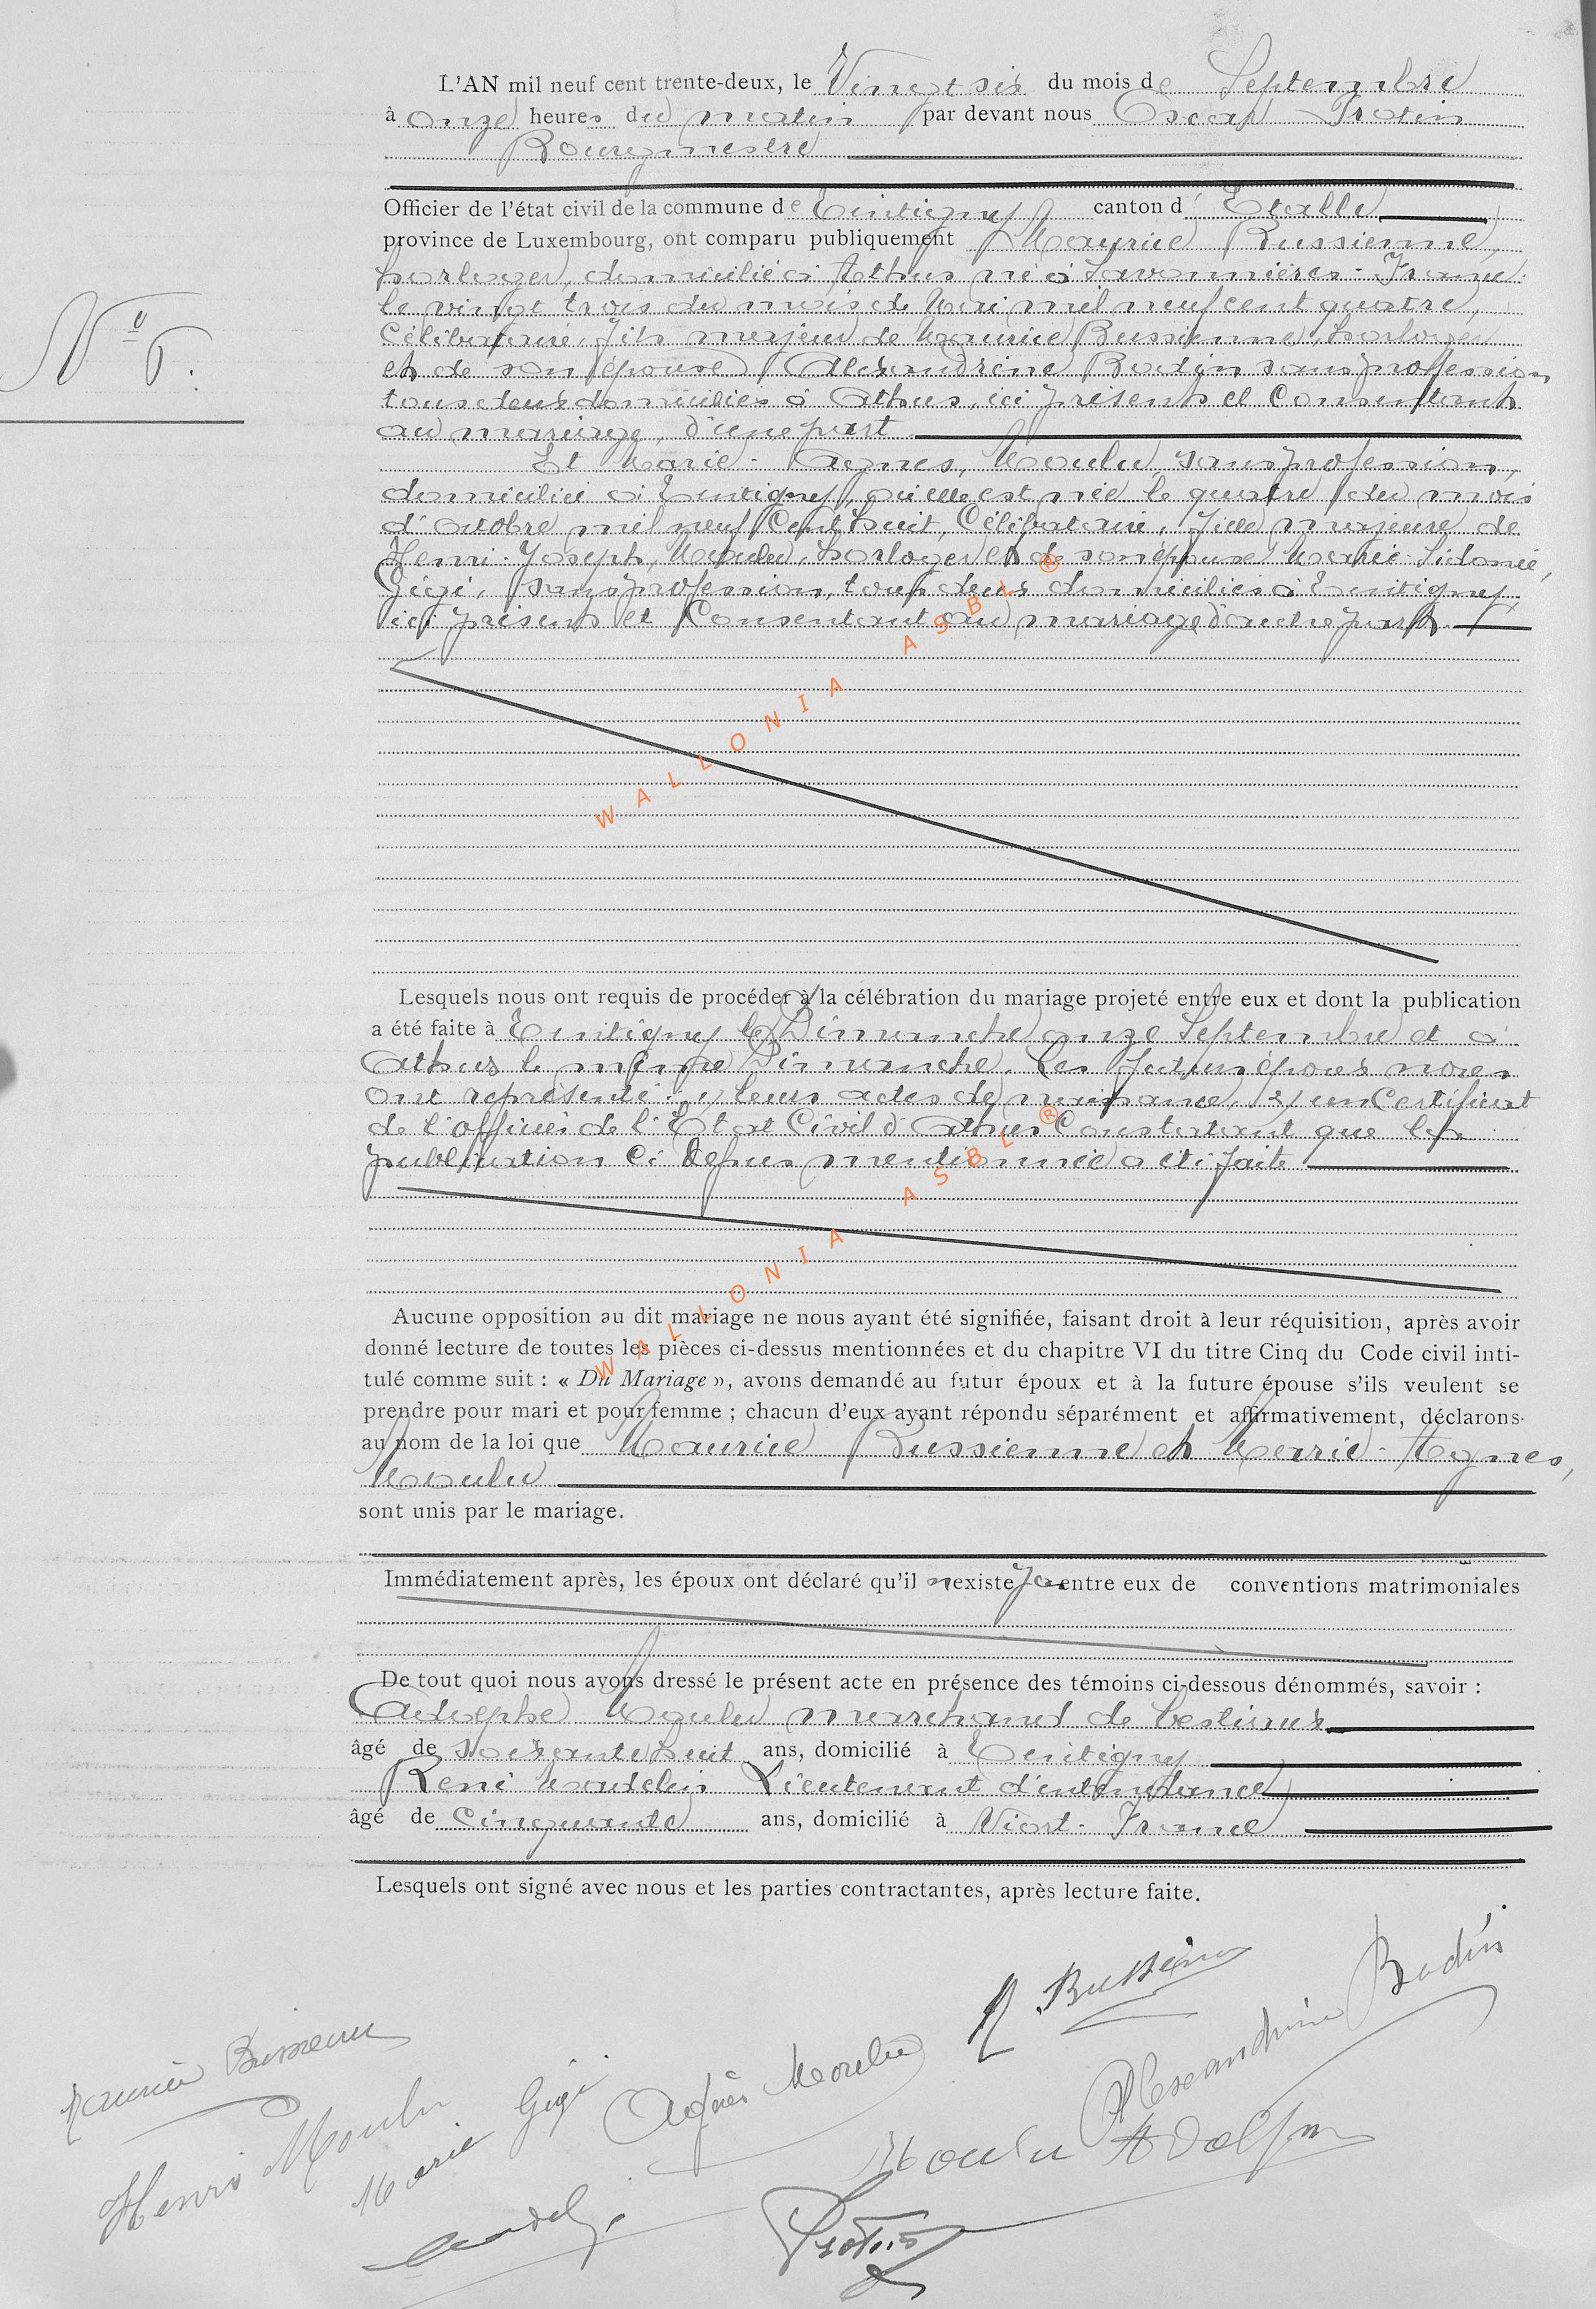 L'AN mil neuf cent trente-deux, le Vingt six du mois de Septembre
à onze heures du matin par devant nous Oscar Protin
Bourgmestre
Officier de l'état civil de la commune de Tintigny canton d' Etalle
province de Luxembourg, ont comparu publiquement Maurice Bussienne,
horloger, domicilié à Athus né à Savonnières - France
le vingt trois du mois de Mai mil neuf cent quatre,
Célibataire, fils majeur de Maurice Bussienne, horloger
et de son épouse Alexandrine Bodin sans profession
tous deux domiciliés à Athus, ici présents et Consentants
au mariage, d'une part
N° 6.
Et Marie - Agnes, Moulu, sans profession,
domiciliée à Tintigny, où elle est née le quatre du mois
d'octobre mil neuf Cent huit, Célibataire, fille majeure de
Henri-Joseph, Moulu, horloger et de son épouse Marie-Sidonie,
Gigi, sans profession, tous deux domiciliés à Tintigny,
ici présents et Consentant au mariage d'autre part
WALLONIA ASBL ®
Lesquels nous ont requis de procéder à la célébration du mariage projeté entre eux et dont la publication
a été faite à Tintigny le Dimanche onze Septembre et à
Athus le même Dimanche. Les futurs époux nous
ont représenté: 1) leurs actes de naissance, 2) un Certificat
de l'officier de l'Etat Civil d'Athus Constatant que la
publication Ci dessus mentionnée a été faite
WALLONIA ASBL ®
Aucune opposition au dit mariage ne nous ayant été signifiée, faisant droit à leur réquisition, après avoir
donné lecture de toutes les pièces ci-dessus mentionnées et du chapitre VI du titre Cinq du Code civil inti-
tulé comme suit : « Du Mariage », avons demandé au futur époux et à la future épouse s'ils veulent se
prendre pour mari et pour femme ; chacun d'eux ayant répondu séparément et affirmativement, déclarons
au nom de la loi que Maurice Bussienne et Marie - Agnes,
Moulu
sont unis par le mariage.
Immédiatement après, les époux ont déclaré qu'il n'existe pas entre eux de conventions matrimoniales
De tout quoi nous avons dressé le présent acte en présence des témoins ci-dessous dénommés, savoir :
Adolphe Moulu marchand de bestiaux
âgé de soixante huit ans, domicilié à Tintigny
René Lieutenant d'intendance
âgé de Cinquante ans, domicilié à France
Lesquels ont signé avec nous et les parties contractantes, après lecture faite.
Maurice Bussienne
Henri Moulu
Marie Gigi
Agnès Moulu
Alexandrine Bodin
Moulu Adolphe
Protin